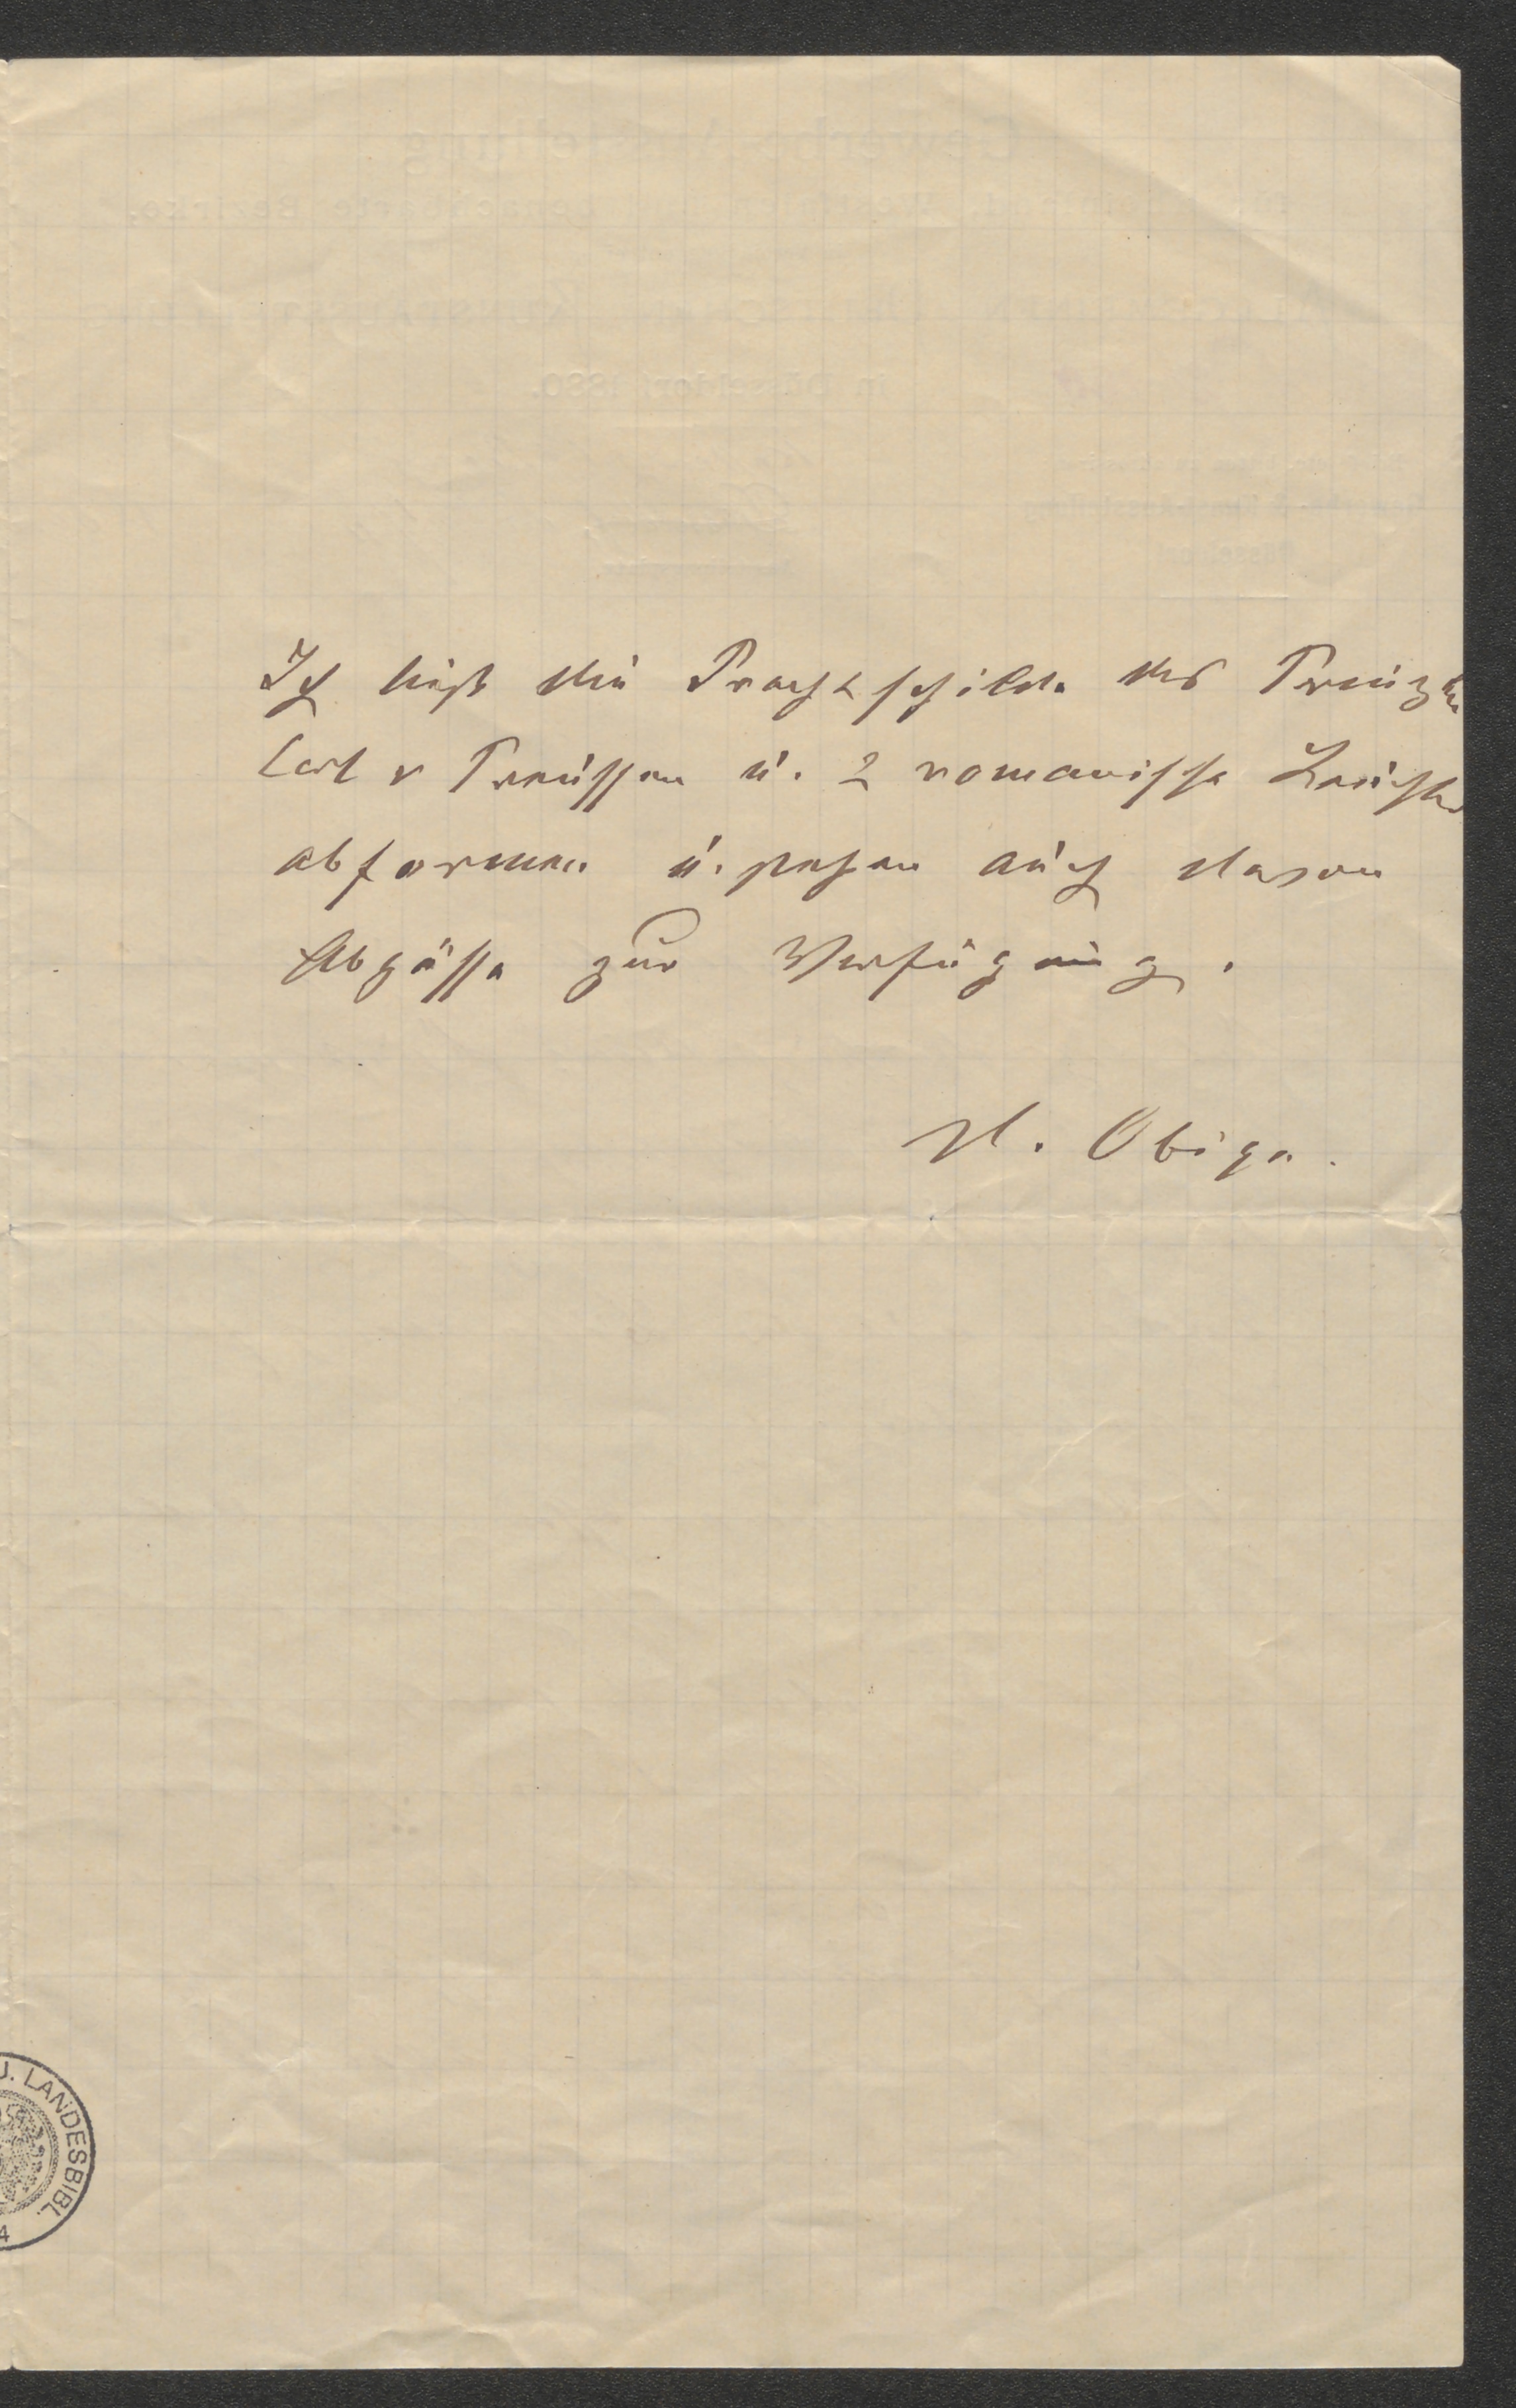 Ich ließ die Prachtschilde des Prinzen
Carl v Preußen u. 2 romanische Leuchter
abformen u. stehen auch davon
Abgüsse zur Verfügung.
d. Obige.
U. LANDESBIBL.
4